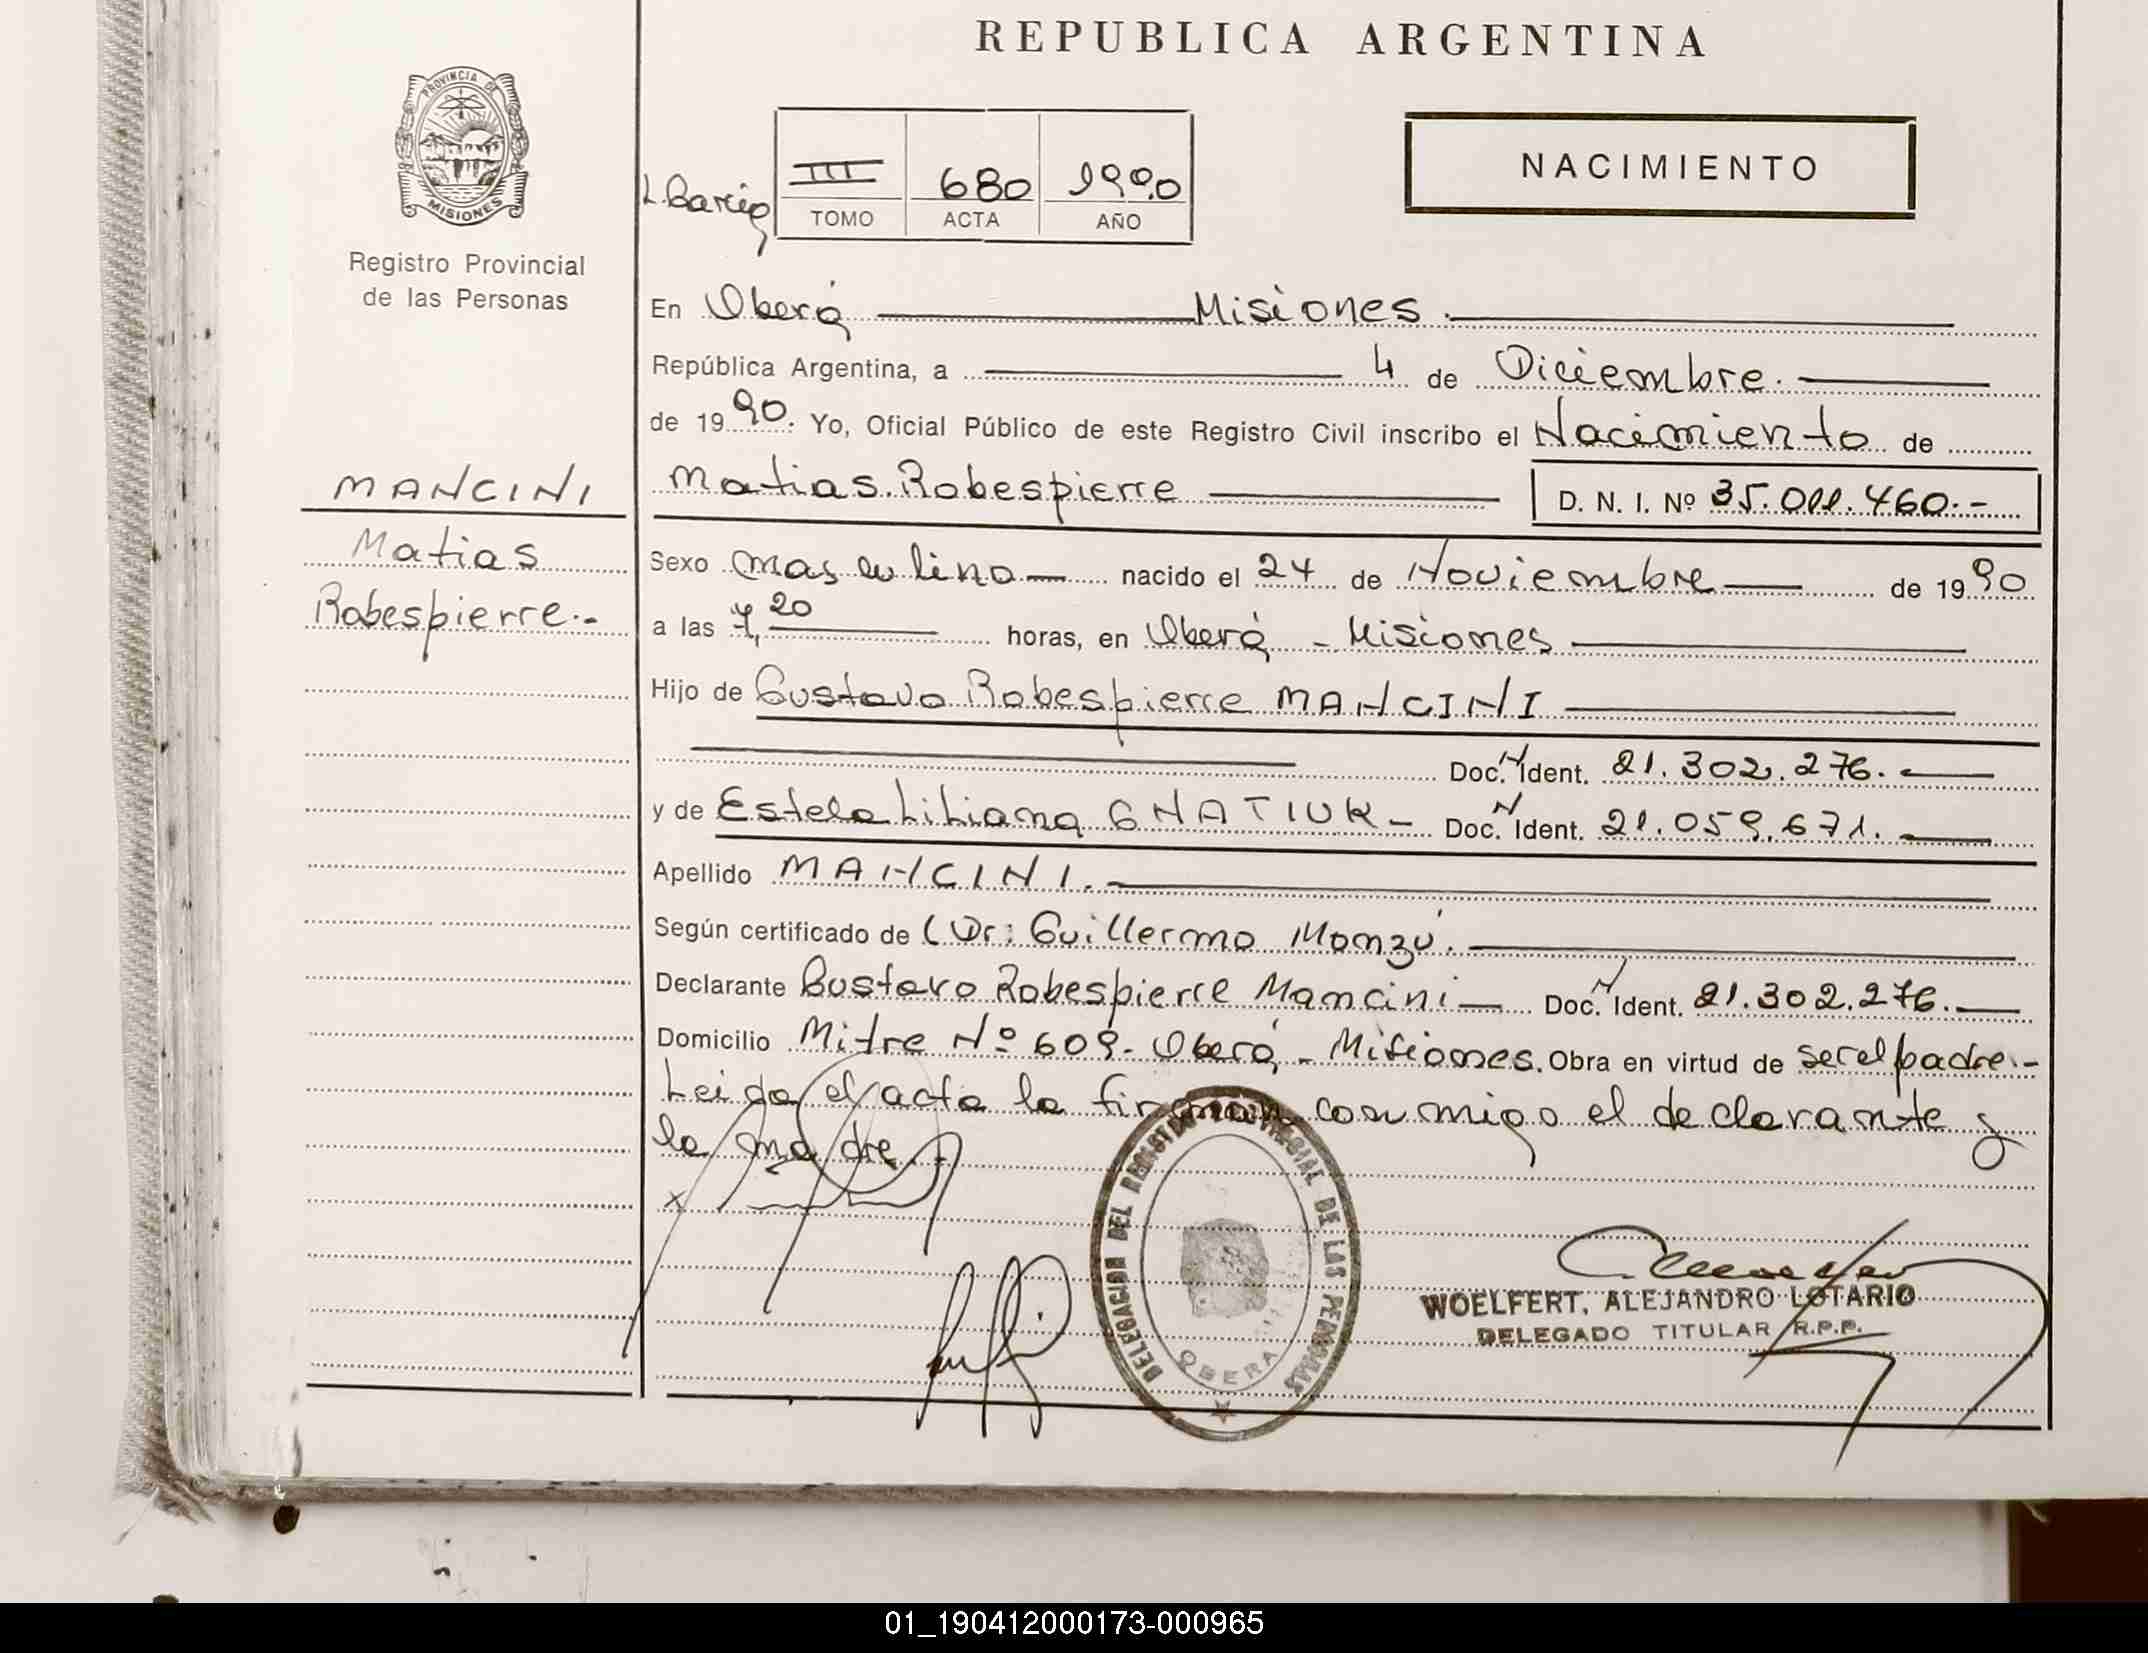 REPUBLICA ARGENTINA
PROVINCIA DE
MISIONES
Registro Provincial
de las Personas
III 680 1990
TOMO ACTA AÑO
NACIMIENTO
En Oberá Misiones.
República Argentina, a 4 de Diciembre.
de 1990. Yo, Oficial Público de este Registro Civil inscribo el Nacimiento de
MANCINI
Matias
Robespierre.-
Matias Robespierre D. N. I. Nº 35.011.460.-
Sexo masculino nacido el 24 de Noviembre de 1990
a las 7,20 horas, en Oberá - Misiones
Hijo de Gustavo Robespierre MANCINI
Doc. N Ident. 21.302.276.
y de Estela Liliana GNATIUK - Doc. N Ident. 21.059.671.
Apellido MANCINI.
Según certificado de (Dr: Guillermo Monzú.
Declarante Gustavo Robespierre Mancini Doc. N Ident. 21.302.276.
Domicilio Mitre Nº 609 - Oberá - Misiones. Obra en virtud de ser el padre.-
Leida el acta la firman conmigo el declarante y
la madre.
x
DELEGACION DEL REGISTRO PROVINCIAL DE LAS PERSONAS
OBERA
WOELFERT, ALEJANDRO LOTARIO
DELEGADO TITULAR R.P.P.
01_190412000173-000965